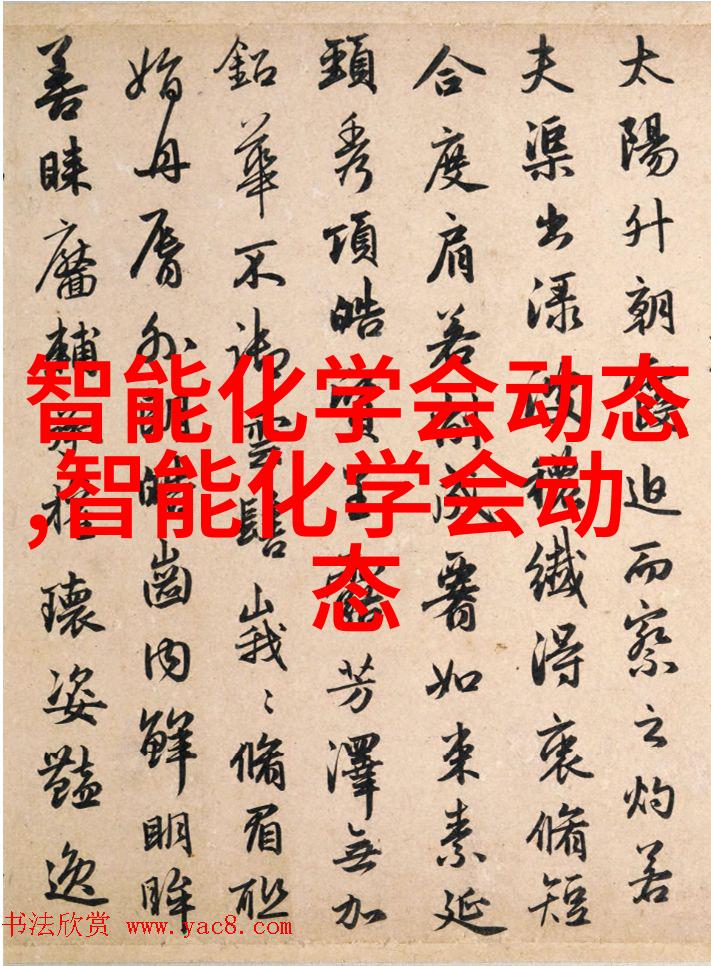 太陽升朝霞迫而察之灼若
夫渠出渌波襛纖得衷脩短
合度肩若削成署如束素延
頸秀項皓質呈露芳澤無加
鉛華不御雲髻峩〻脩眉聮
娟丹脣外朗皓齒内鮮明眸
善睞靨輔承權瓌姿豔逸
智能化学会动态
,智能化学会动
态
书法欣赏 www.yac8.com